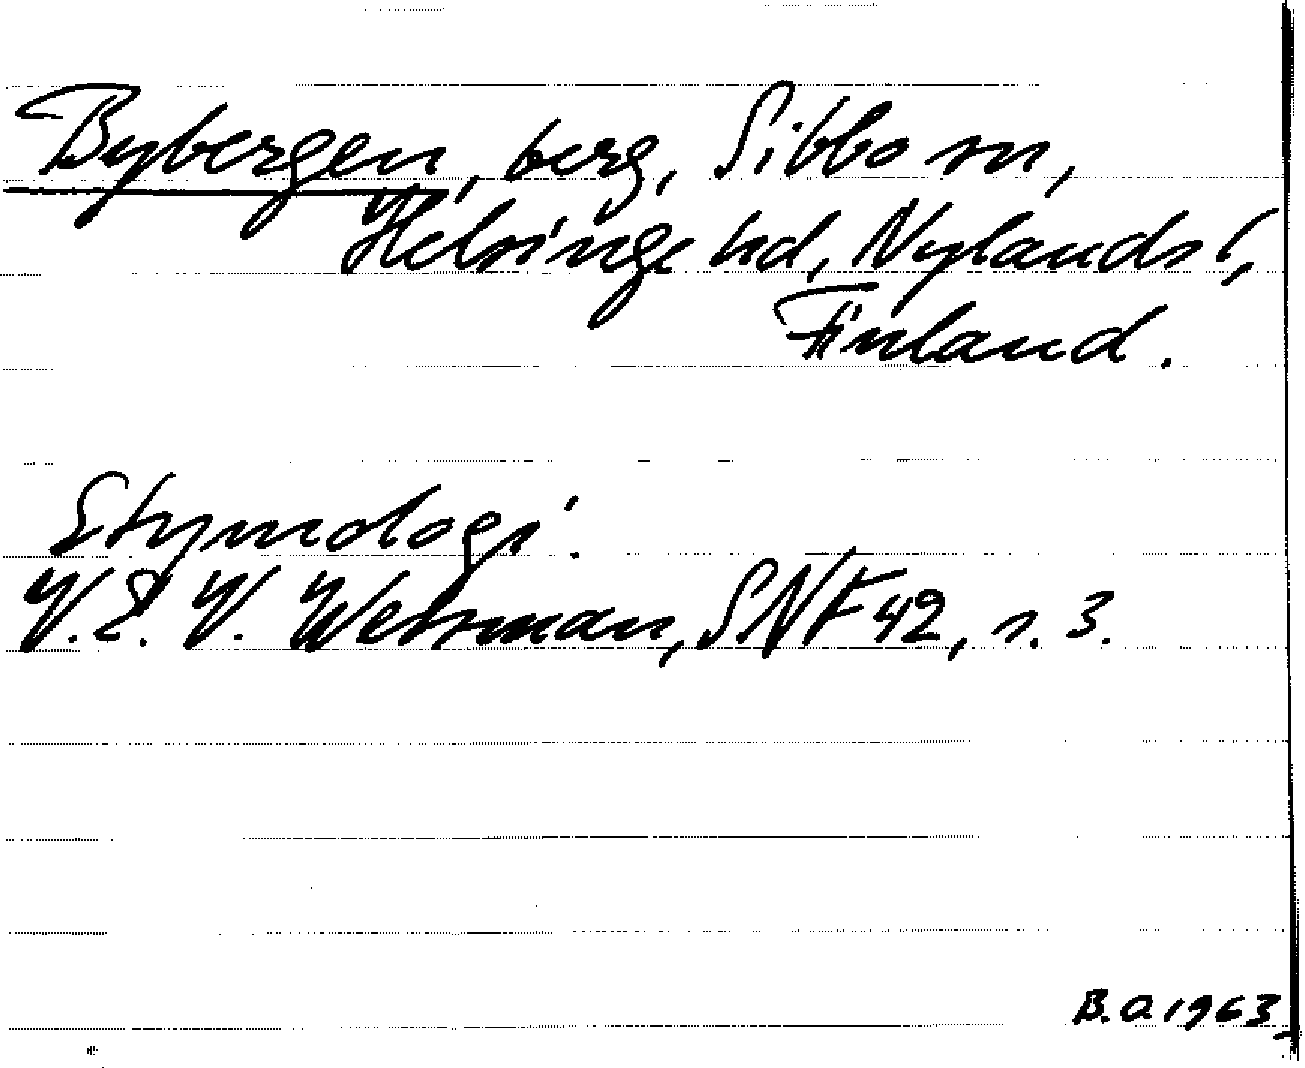 Bybergen, berg, Sibbo sn,
Helsinge hd, Nylands l,
Finland.
Etymologi:
V. E. V. Wessman, SNF 42, s. 3.
B.O. 1963